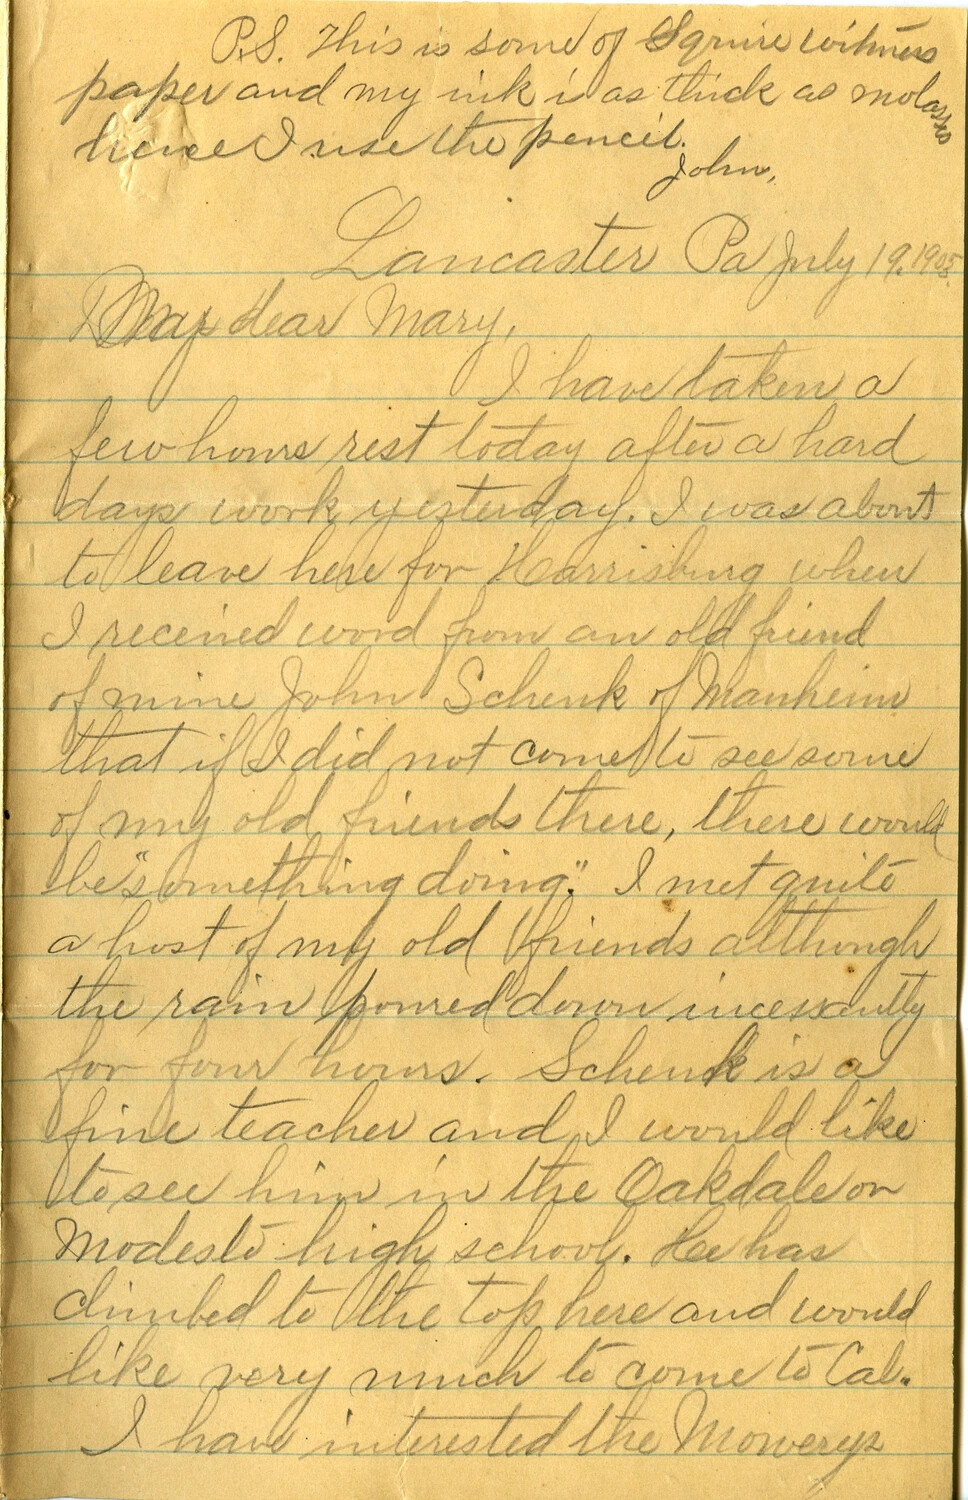 P.S. This is some of Squire witness
paper and my ink is as thick as molasses
hence I use the pencil.
John,
Lancaster Pa July 19, 1905.
My dear Mary,
I have taken a
few hours rest today after a hard
days work yesterday. I was about
to leave here for Harrisburg when
I received word from an old friend
of mine John Schenk of Manheim
that if I did not come to see some
of my old friends there, there would
be "something doing." I met quite
a host of my old friends although
the rain poured down incessantly
for four hours. Schenk is a
fine teacher and I would like
to see him in the Oakdale or
Modesto high school. He has
climbed to the top here and would
like very much to come to Cal.
I have interested the Mowerys